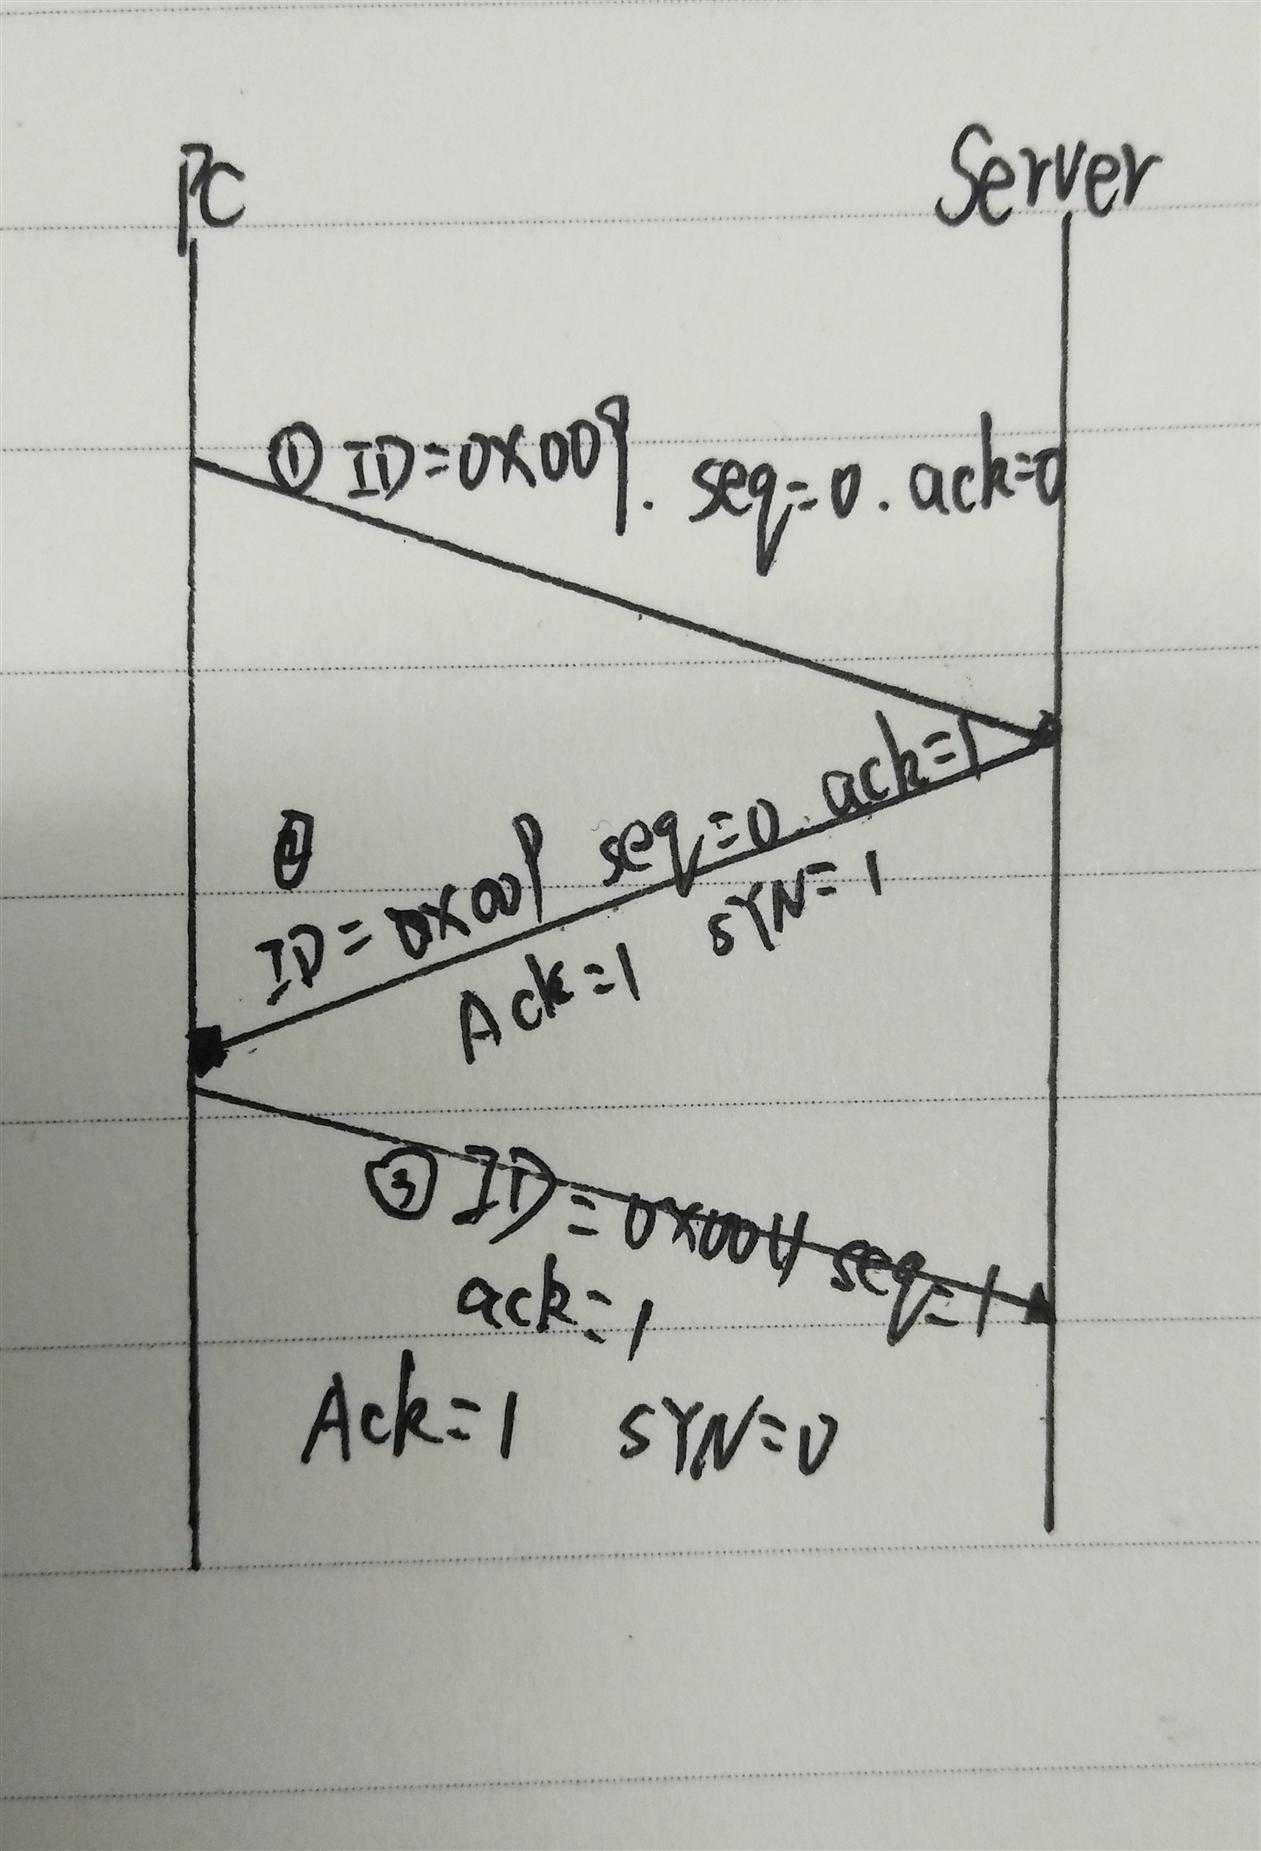 PC Server
① ID=0X009. seq=0. ack=0
②
ID=0X009 seq=0. ack=1
Ack=1 SYN=1
③ ID=0X004 seq=1
ack=1
Ack=1 SYN=0